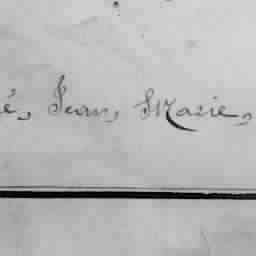 é, Jean, Marie,